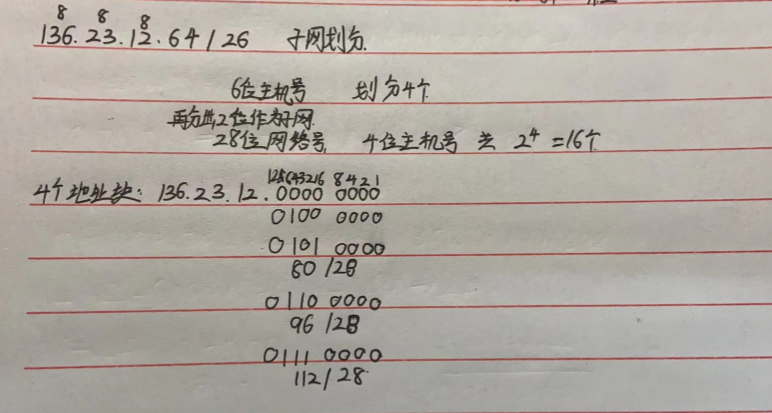 8 8 8
136.23.12.64/26 子网划分.
6位主机号 划分4个
再分出2位作为子网
28位网络号, 4位主机号 共 2⁴=16个
128643216 8421
4个地址块: 136.23.12.0000 0000
0100 0000
0101 0000
80/28
0110 0000
96/28
0111 0000
112/28.